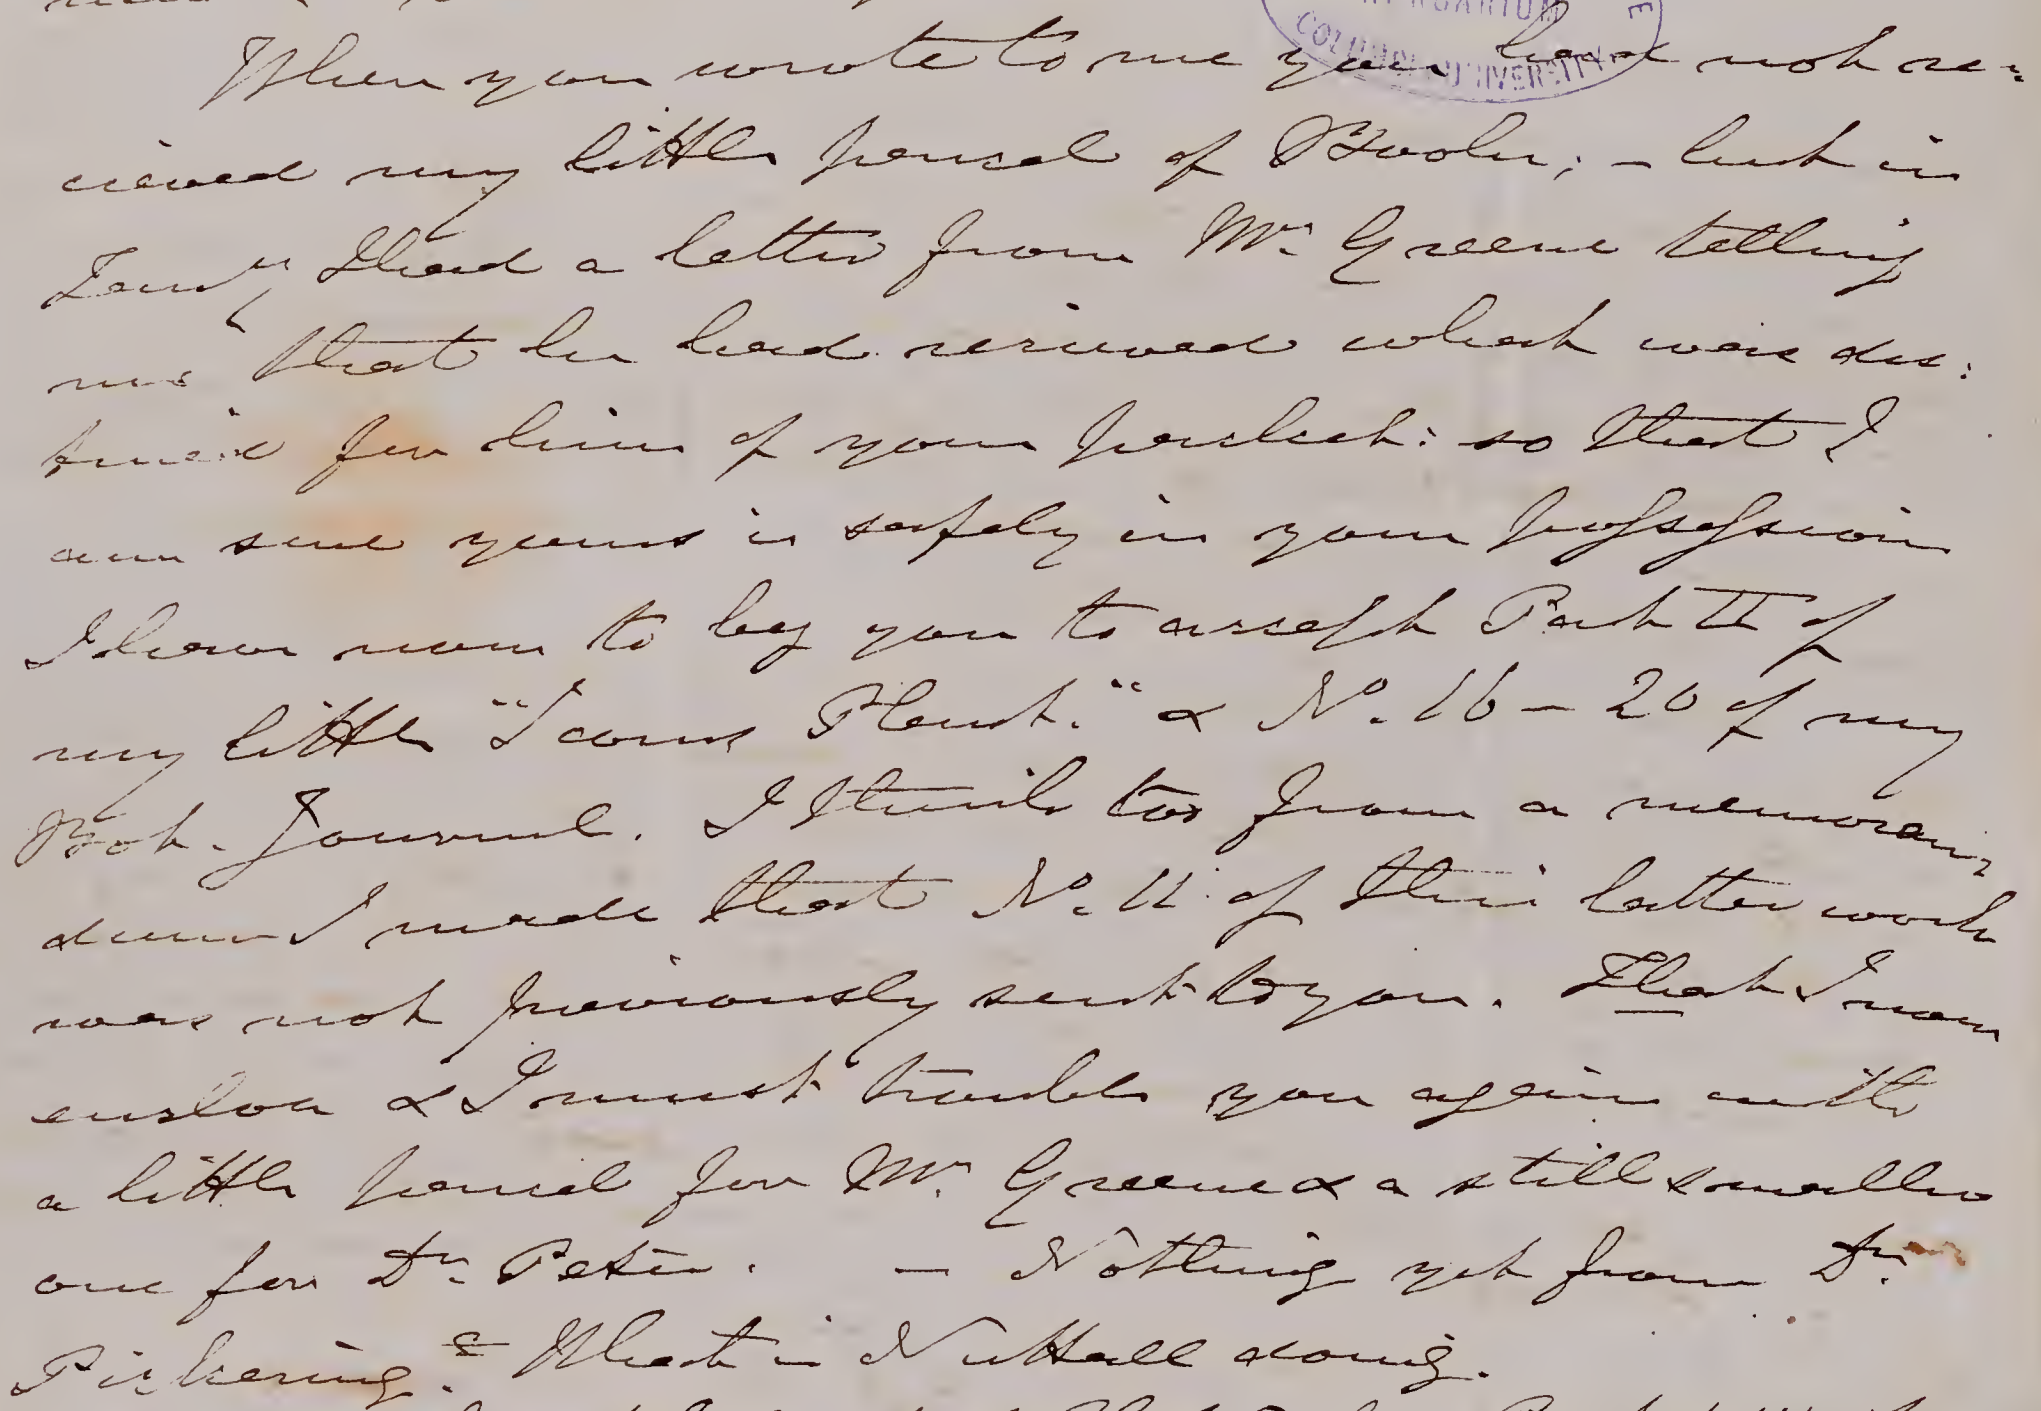 HERBARIUM
COLUMBIA UNIVERSITY
When you wrote to me you had not re-
cieved my little parcel of Books; - but in
Jany. I had a letter from Mr. Greene telling
me that he had recieved what was des:
tined for him of your packet: so that I
am sure yours is safely in your possession
I have now to beg you to accept Part II of
my little "Icones Plant." & No. 16 - 20 of my
Bot. Journal. I think too from a memoran-
dum I made that No. 11 of this latter work
was not previously sent to you. That I now
enclose & I must trouble you again with
a little parcel for Mr. Greene & a still smaller
one for Dr. Peter. - Nothing yet from Dr.
Pickering. = What is Nuttall doing.